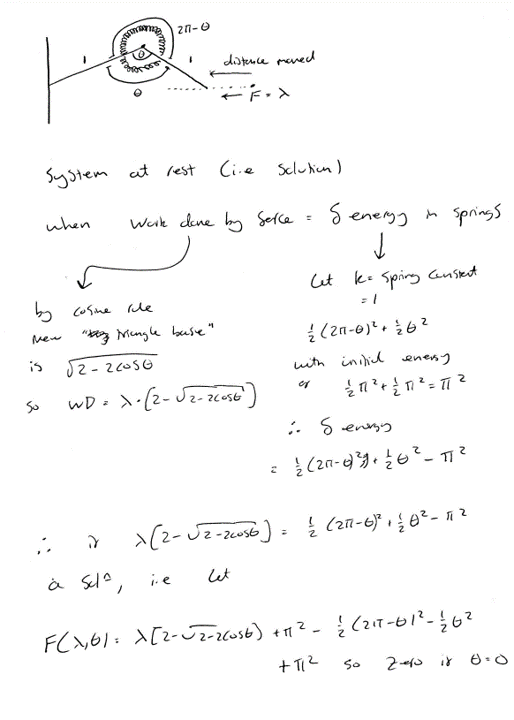 2π-θ
1 θ 1 distance moved
θ ← F = λ
System at rest (i.e solution)
when work done by force = δ energy in springs
by cosine rule
new "triangle base"
is √2-2cosθ
so WD = λ·(2-√2-2cosθ)
Let k = spring constant
= 1
½(2π-θ)² + ½θ²
with initial energy
of ½π² + ½π² = π²
∴ δ energy
= ½(2π-θ)² + ½θ² - π²
∴ if λ[2-√2-2cosθ] = ½(2π-θ)² + ½θ² - π²
a solⁿ, i.e let
F(λ,θ) = λ[2-√2-2cosθ) + π² - ½(2π-θ)² - ½θ²
+π² so zero if θ=0